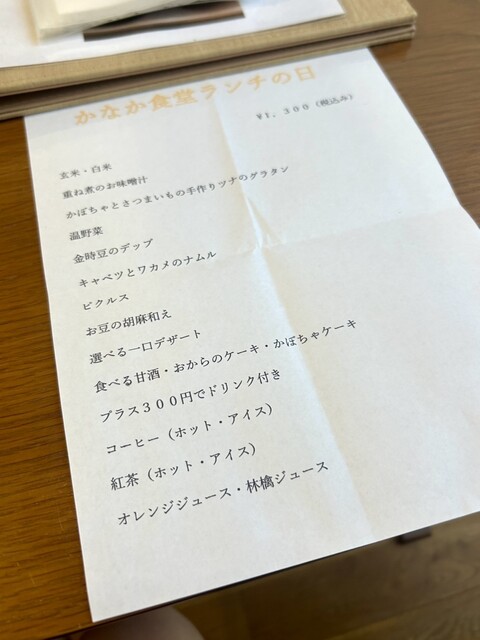 かなか食堂ランチの日
¥1，３００（税込み）
玄米・白米
重ね煮のお味噌汁
かぼちゃとさつまいもの手作りツナのグラタン
温野菜
金時豆のデップ
キャベツとワカメのナムル
ピクルス
お豆の胡麻和え
選べる一口デザート
食べる甘酒・おからのケーキ・かぼちゃケーキ
プラス３００円でドリンク付き
コーヒー（ホット・アイス）
紅茶（ホット・アイス）
オレンジジュース・林檎ジュース